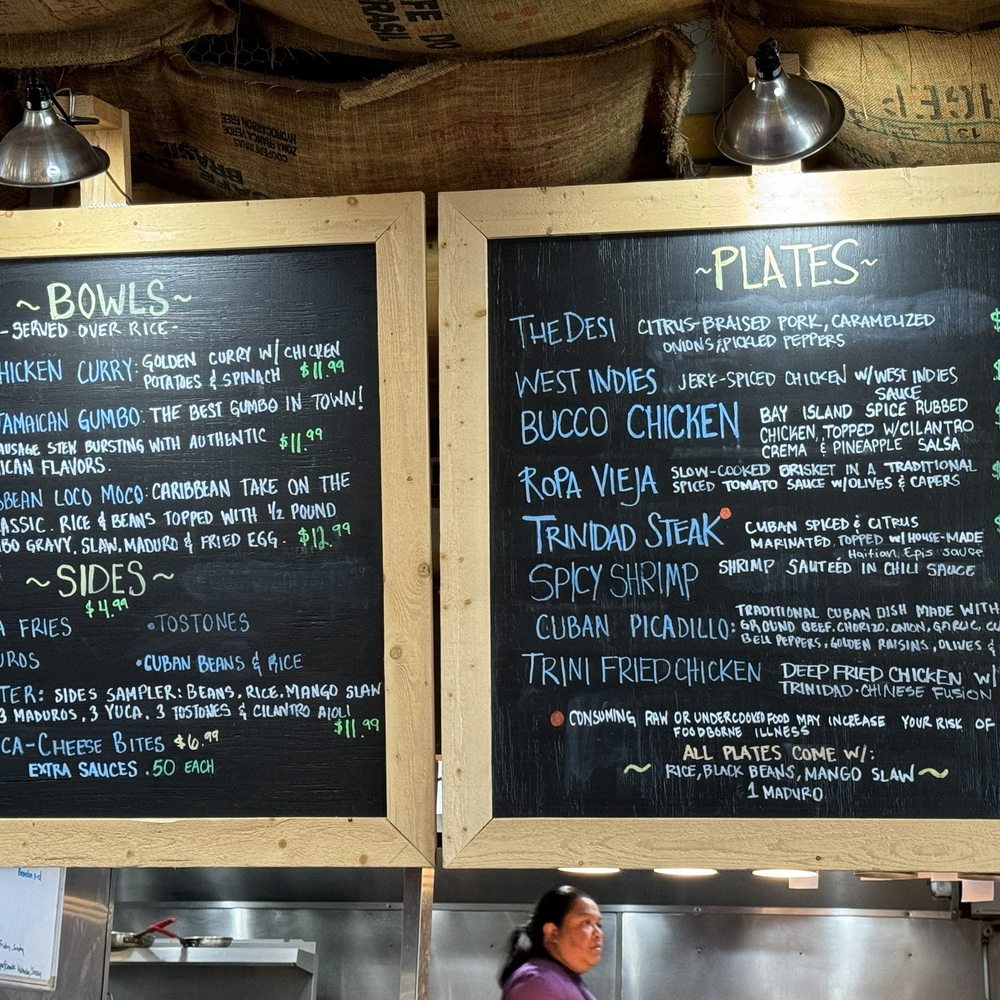 CAFE DO
BRASIL
COOPERE PINAS
HYDROCARBON FREE
~BOWLS~
-SERVED OVER RICE-
HICKEN CURRY: GOLDEN CURRY W/ CHICKEN
POTATOES & SPINACH $11.99
JAMAICAN GUMBO: THE BEST GUMBO IN TOWN!
AUSAGE STEW BURSTING WITH AUTHENTIC $11.99
ICAN FLAVORS.
BBEAN LOCO MOCO: CARIBBEAN TAKE ON THE
ASSIC. RICE & BEANS TOPPED WITH 1/2 POUND
BO GRAVY, SLAW, MADURO & FRIED EGG. $12.99
~SIDES~
$4.99
A FRIES •TOSTONES
UROS •CUBAN BEANS & RICE
TER: SIDES SAMPLER: BEANS, RICE, MANGO SLAW
3 MADUROS, 3 YUCA, 3 TOSTONES & CILANTRO AIOLI
$11.99
CA-CHEESE BITES $6.99
EXTRA SAUCES .50 EACH
~PLATES~
THE DESI CITRUS-BRAISED PORK, CARAMELIZED
ONIONS & PICKLED PEPPERS
WEST INDIES JERK-SPICED CHICKEN W/WEST INDIES
SAUCE
BUCCO CHICKEN BAY ISLAND SPICE RUBBED
CHICKEN, TOPPED W/CILANTRO
CREMA & PINEAPPLE SALSA
ROPA VIEJA SLOW-COOKED BRISKET IN A TRADITIONAL
SPICED TOMATO SAUCE W/OLIVES & CAPERS
TRINIDAD STEAK CUBAN SPICED & CITRUS
MARINATED, TOPPED W/HOUSE-MADE
Haitian Epis sauce
SPICY SHRIMP SHRIMP SAUTEED IN CHILI SAUCE
CUBAN PICADILLO: TRADITIONAL CUBAN DISH MADE WITH
GROUND BEEF, CHORIZO, ONION, GARLIC, CU
BELL PEPPERS, GOLDEN RAISINS, OLIVES &
TRINI FRIED CHICKEN DEEP FRIED CHICKEN W/
TRINIDAD-CHINESE FUSION
CONSUMING RAW OR UNDERCOOKED FOOD MAY INCREASE YOUR RISK OF
FOODBORNE ILLNESS
ALL PLATES COME W/:
~ RICE, BLACK BEANS, MANGO SLAW ~
1 MADURO